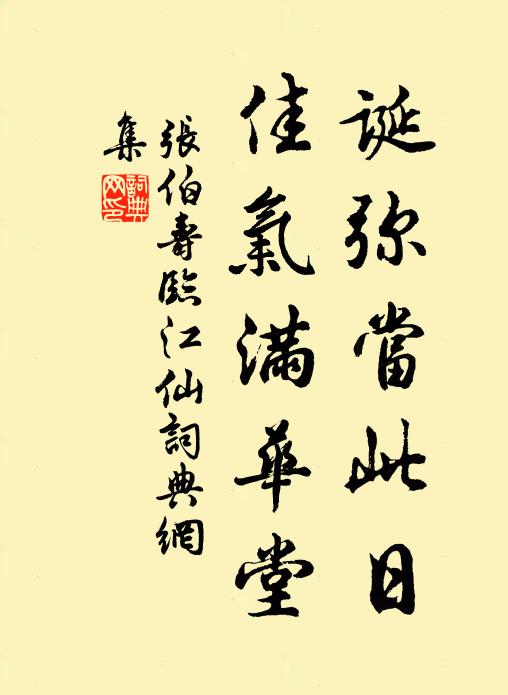 誕弥當此日
佳氣滿華堂
張伯壽臨江仙詞典網
集
詞典
网印